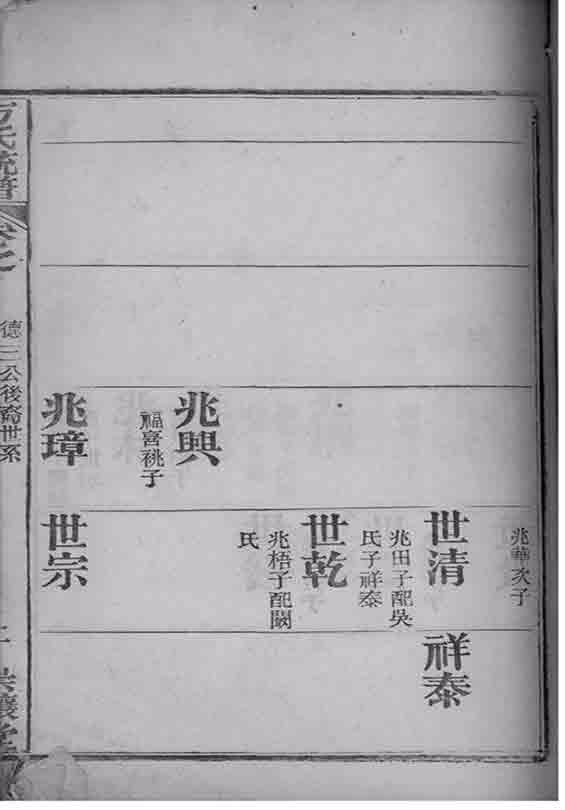 兆華次子
世清
兆田子配吳
氏子祥泰
祥泰
世乾
兆梧子配闞
氏
兆興
福喜祧子
兆璋
世宗
方氏統譜
卷之
德三公後裔世系